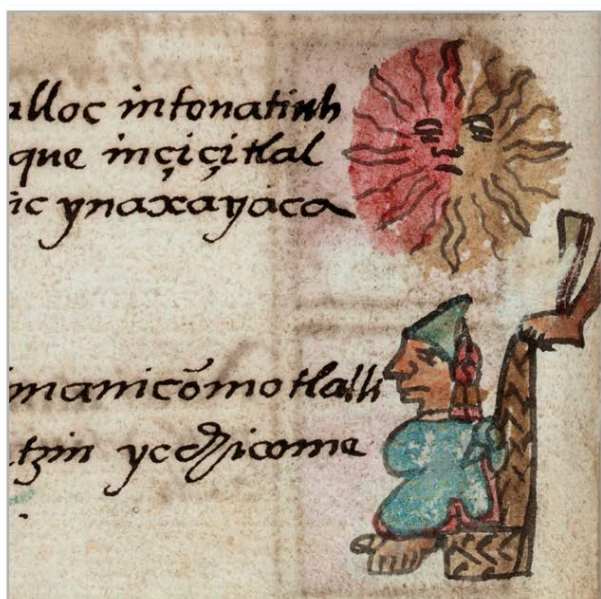 alloc intonatiuh
que inçiçitlal
ic ynaxayaca
imanicōmotlalli
tzin ycchicome